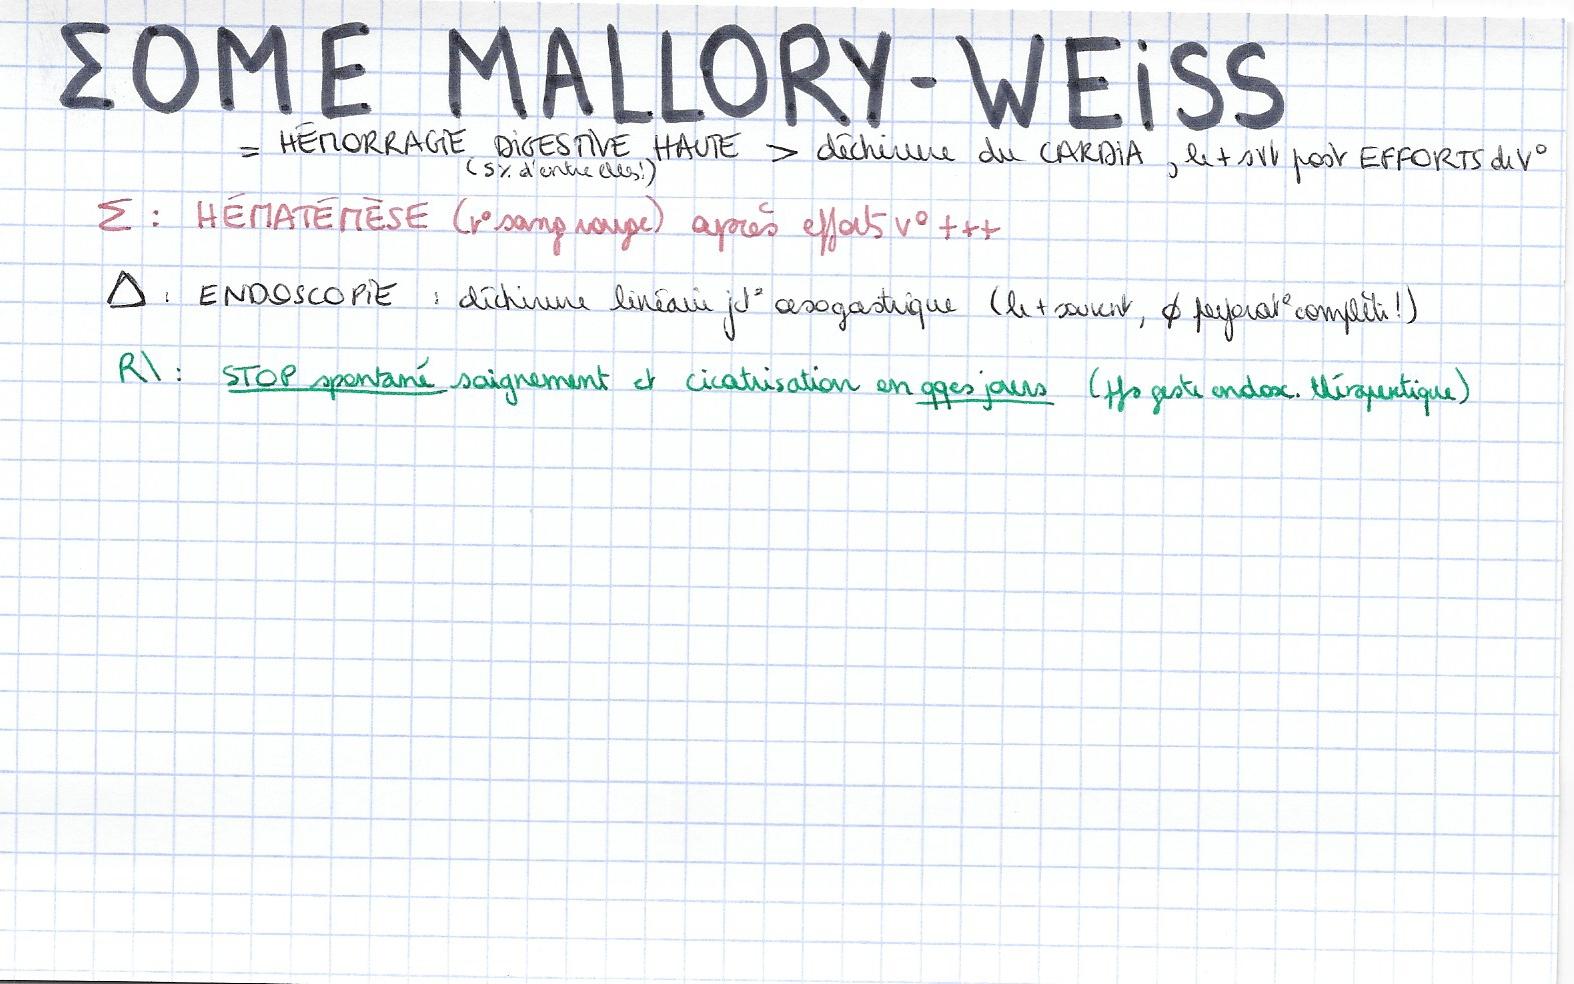 ΣOME MALLORY-WEiSS
= HÉMORRAGIE DiGESTIVE HAUTE > déchirure du CARDiA, le + svt post EFFORTS de V°
(5% d'entre elles!)
Σ : HÉMATÉMÈSE (v° sang rouge) après efforts v° +++
Δ : ENDOSCOPiE : déchirure linéaire jct° œsogastrique (le + souvent, ϕ perforat° complète!)
R\ : STOP spontané saignement et cicatrisation en qqes jours (± geste endosc. thérapeutique)